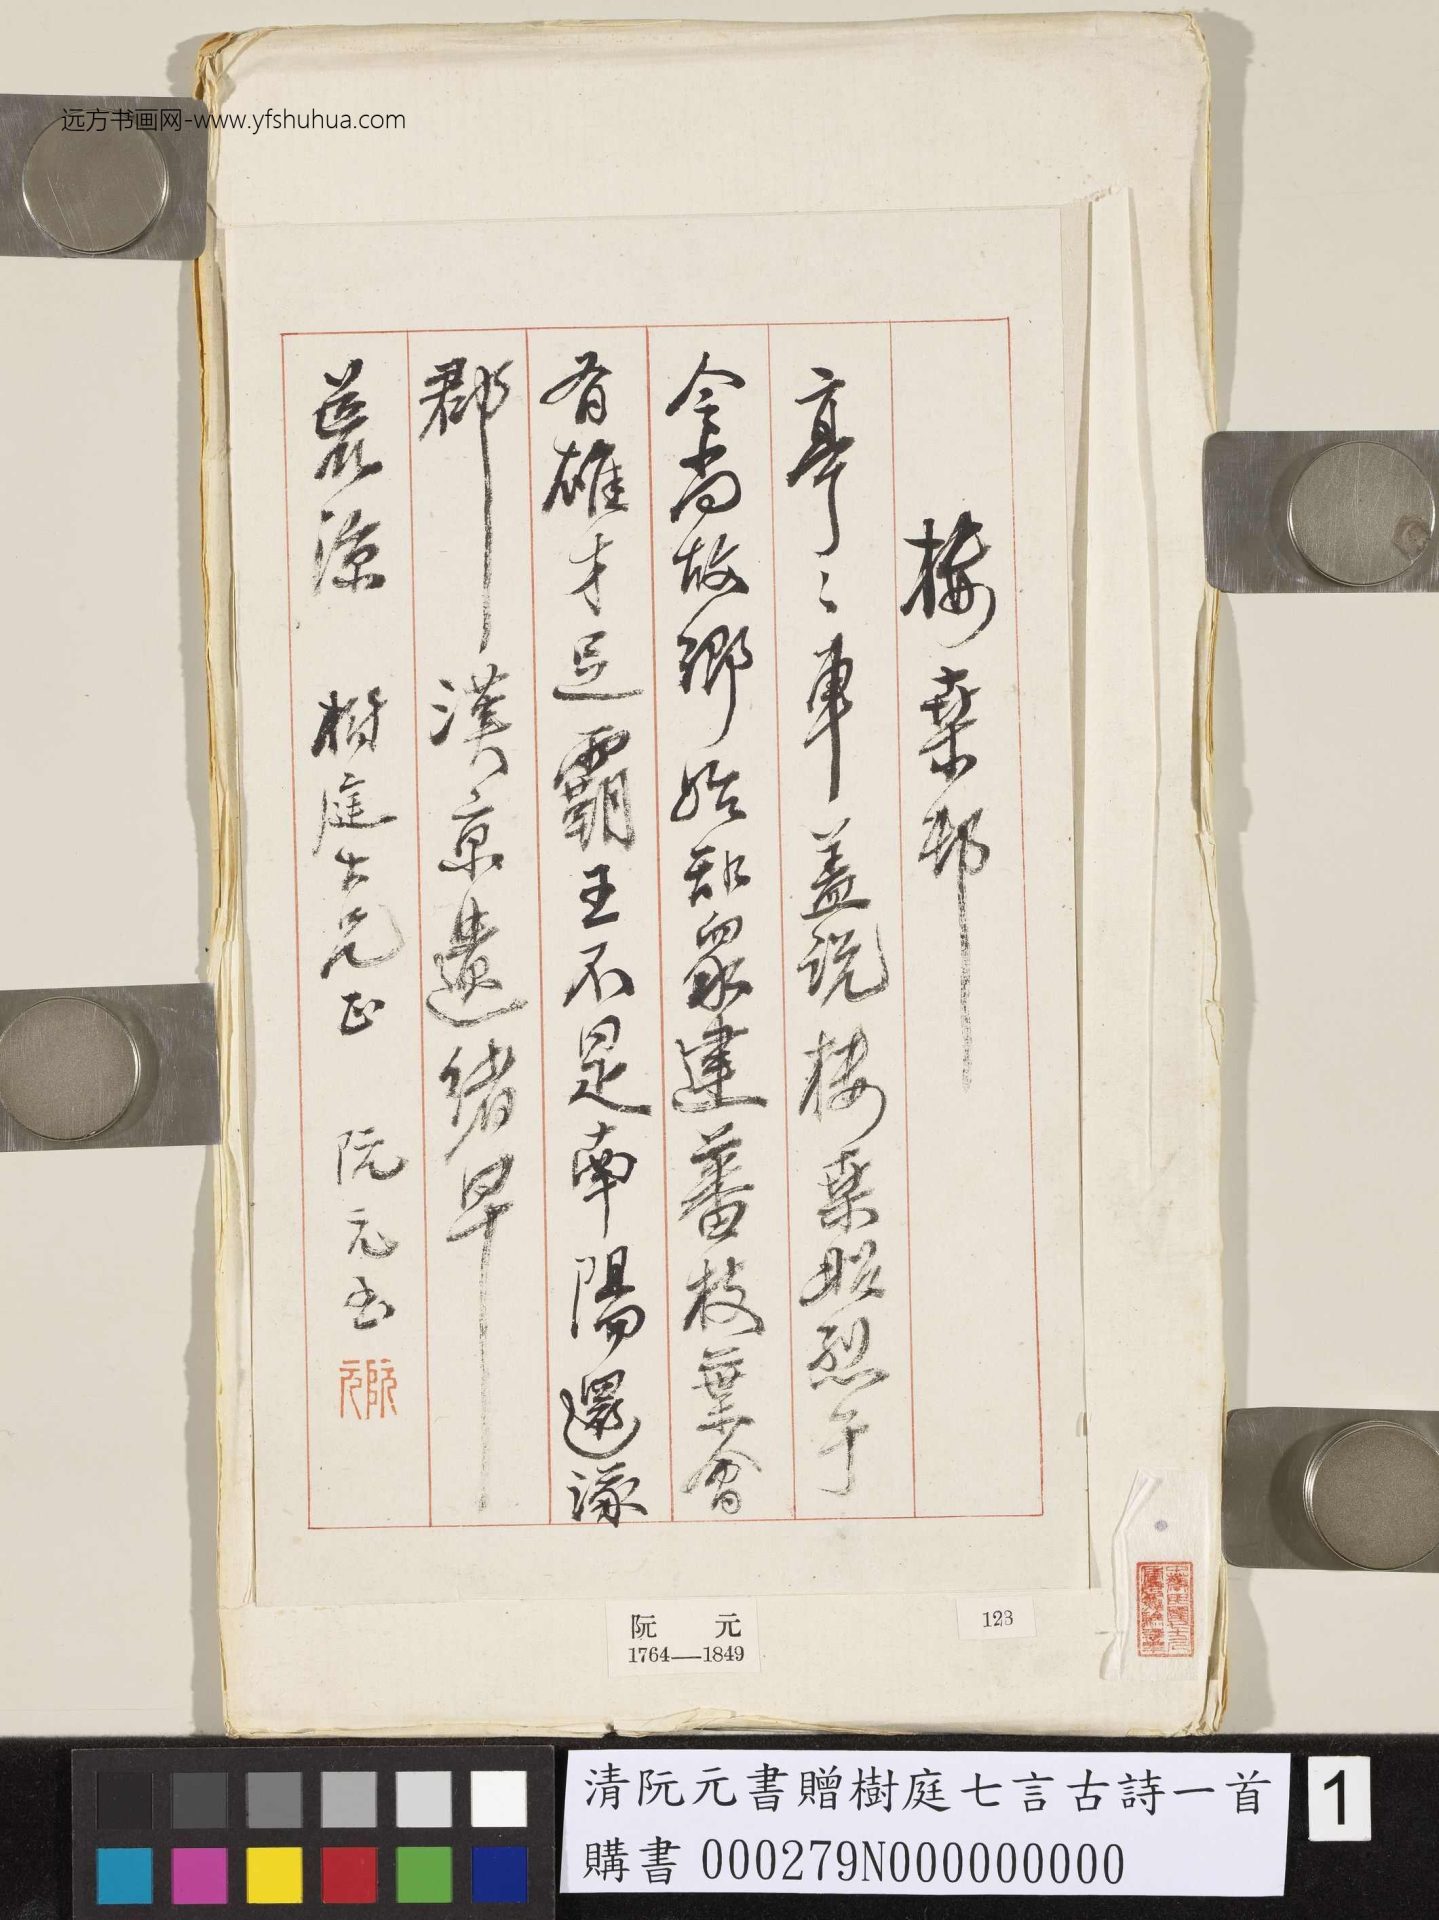 远方书画网-www.yfshuhua.com
樓桑邨
亭〻車盖說樓桑昭烈于
今尚故鄉始知眾建蕃枝葉會
有雄才足霸王不是南陽還涿
郡漢京遺緒早
荒涼 樹庭大兄正 阮元書
阮元
阮 元
1764—1849
123
清阮元書贈樹庭七言古詩一首
購書 000279N000000000
1